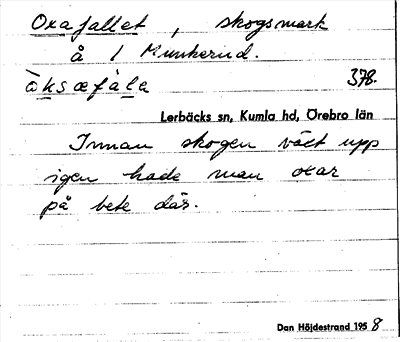 Oxafallet, skogsmark
å 1 Munkerud.
àksæfàla 378.
Lerbäcks sn, Kumla hd, Örebro län
Innan skogen växt upp
igen hade man oxar
på bete där.
Dan Höjdestrand 1958